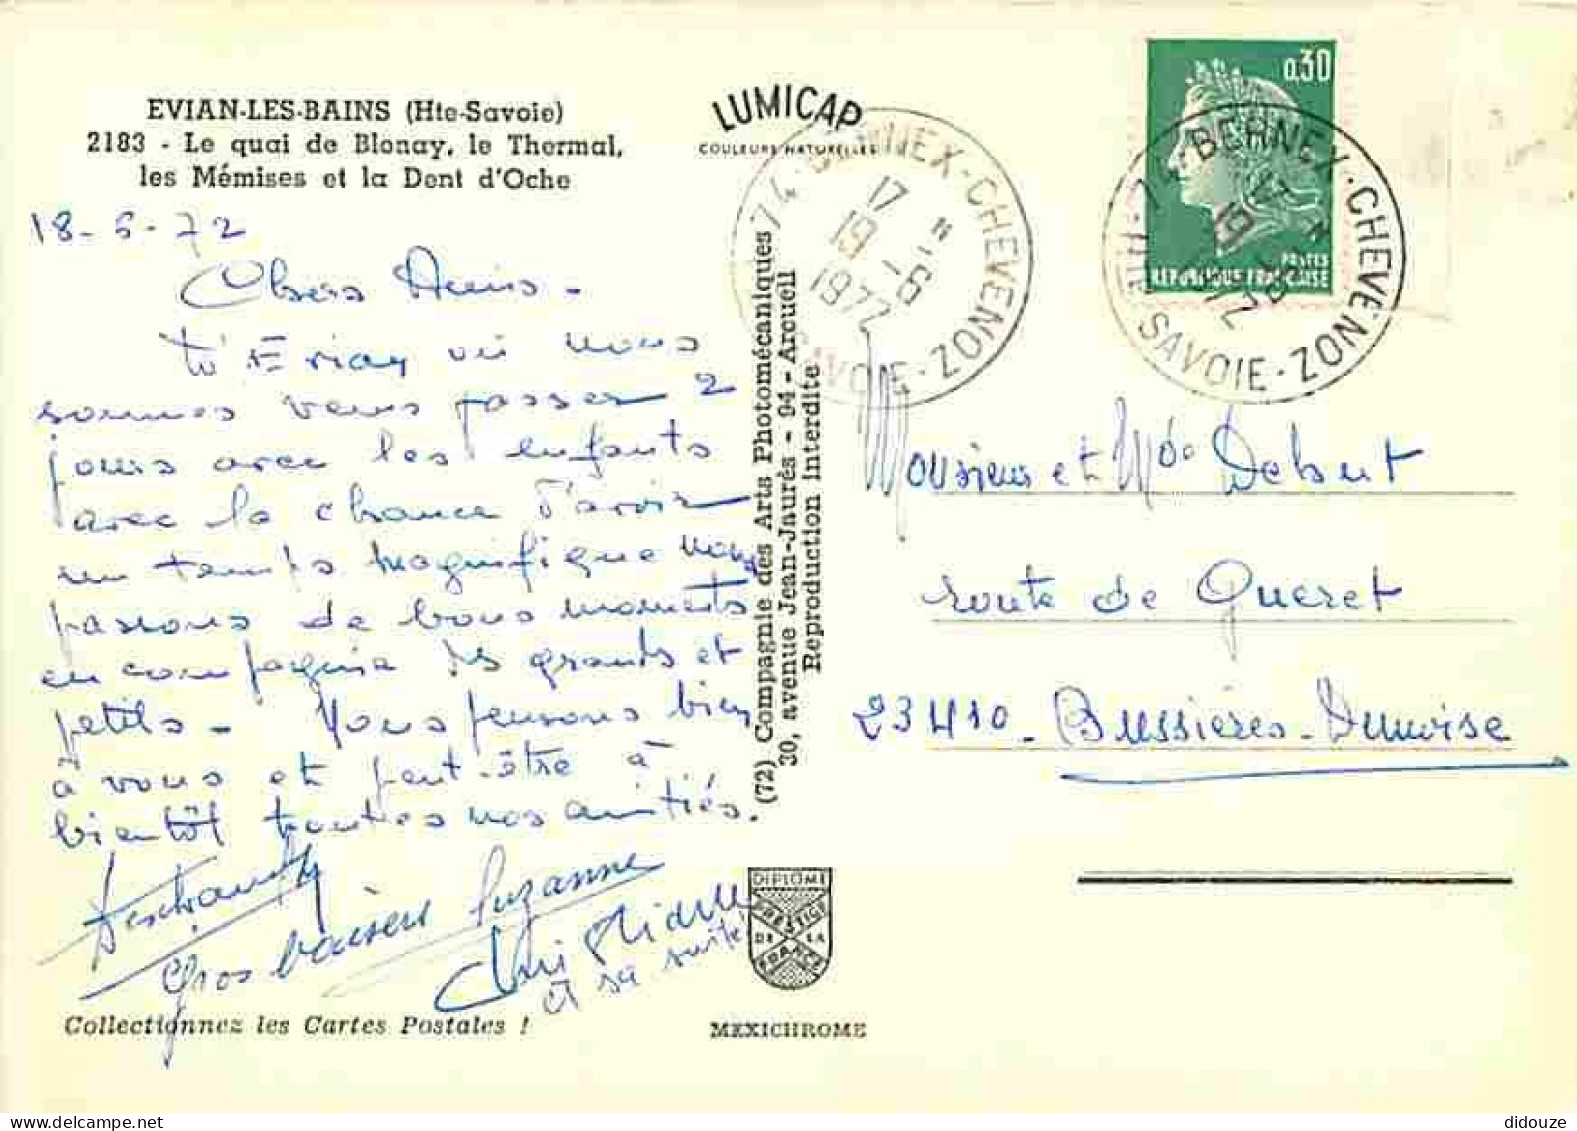 EVIAN-LES-BAINS (Hte-Savoie)
2183 - Le quai de Blonay, le Thermal,
les Mémises et la Dent d'Oche
LUMICAP
COULEURS NATURELLES
18-6-72
Chers Amis -
D'Evian où nous
sommes venus passer 2
jours avec les enfants
avec la chance d'avoir
un temps magnifique nous
passons de bons moments
en compagnie des grands et
petits - Nous pensons bien
à vous et peut-être à
bientôt toutes nos amitiés.
Gros baisers Suzanne
et sa suite!
Collectionnez les Cartes Postales !
(72) Compagnie des Arts Photomécaniques
30, avenue Jean-Jaurès - 94 - Arcueil
Reproduction interdite
DIPLOME
PRESTIGE
DE LA
FRANCE
MEXICHROME
74 - BERNEX-CHEVENOZ
17 H
19 - 6
1972
SAVOIE
0,30
POSTES
REPUBLIQUE FRANÇAISE
74 - BERNEX-CHEVENOZ
17 H
19 - 6
1972
HTE SAVOIE
Monsieur et Mde Debut
route de Gueret
23410 - Bussières-Dunoise
didouze